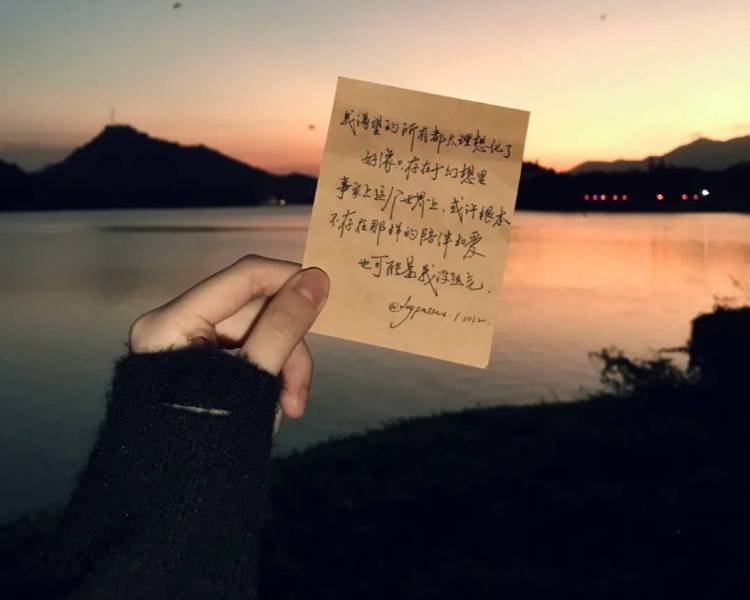 我渴望的所有都太理想化了
好像只存在于幻想里
事实上这个世界上、或许根本
不存在那样的陪伴和爱
也可能是我没遇见.